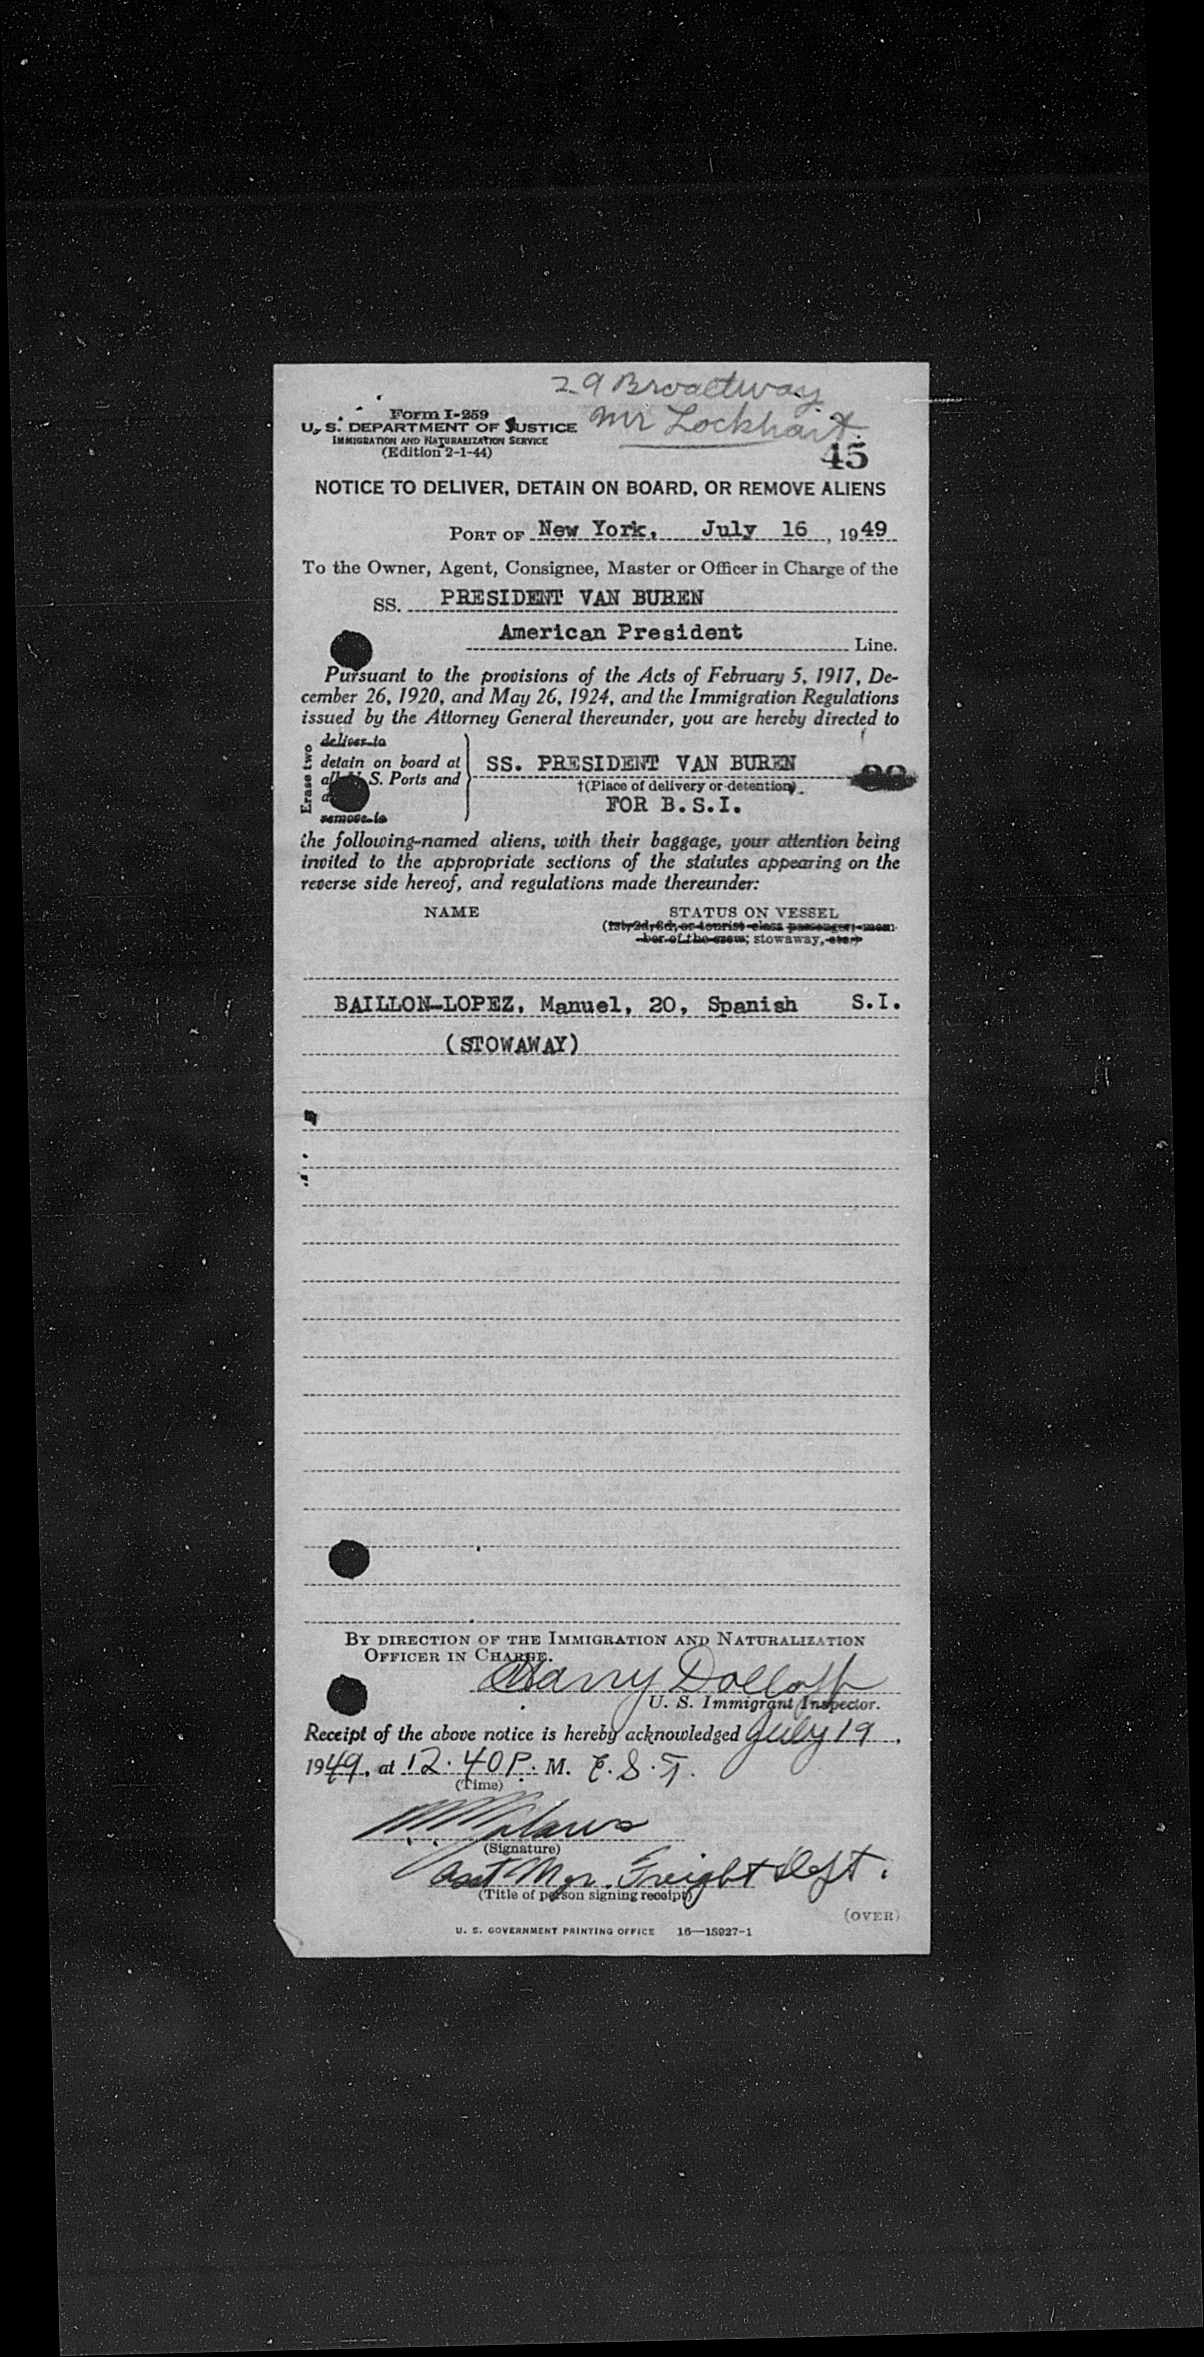 29 Broadway
Mr Lockhart.
Form I-259
U. S. DEPARTMENT OF JUSTICE
IMMIGRATION AND NATURALIZATION SERVICE
(Edition 2-1-44)
45
NOTICE TO DELIVER, DETAIN ON BOARD, OR REMOVE ALIENS
PORT OF New York, July 16, 1949
To the Owner, Agent, Consignee, Master or Officer in Charge of the
SS. PRESIDENT VAN BUREN
American President Line.
Pursuant to the provisions of the Acts of February 5, 1917, De-
cember 26, 1920, and May 26, 1924, and the Immigration Regulations
issued by the Attorney General thereunder, you are hereby directed to
Erase two
deliver to
detain on board at
all U. S. Ports and
remove to
SS. PRESIDENT VAN BUREN
†(Place of delivery or detention)
FOR B.S.I.
the following-named aliens, with their baggage, your attention being
invited to the appropriate sections of the statutes appearing on the
reverse side hereof, and regulations made thereunder:
NAME STATUS ON VESSEL
(1st, 2d, 3d, or tourist class passenger; mem-
ber of the crew; stowaway, etc.)
BAILLON-LOPEZ, Manuel, 20, Spanish S.I.
(STOWAWAY)
BY DIRECTION OF THE IMMIGRATION AND NATURALIZATION
OFFICER IN CHARGE.
Harry Dolloff
U. S. Immigrant Inspector.
Receipt of the above notice is hereby acknowledged July 19,
1949, at 12.40 P. M. E.S.T.
(Time)
(Signature)
Asst Mgr. Freight Dept.
(Title of person signing receipt)
(OVER)
U. S. GOVERNMENT PRINTING OFFICE 16—15927-1